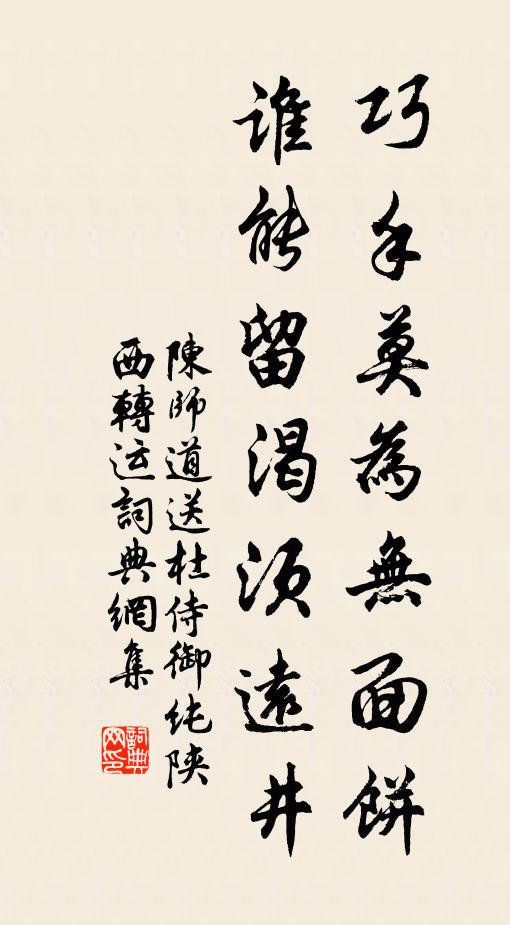 巧手莫為無面餅
誰能留渴須遠井
陳師道送杜侍御純陝
西轉運詞典網集
詞典網印